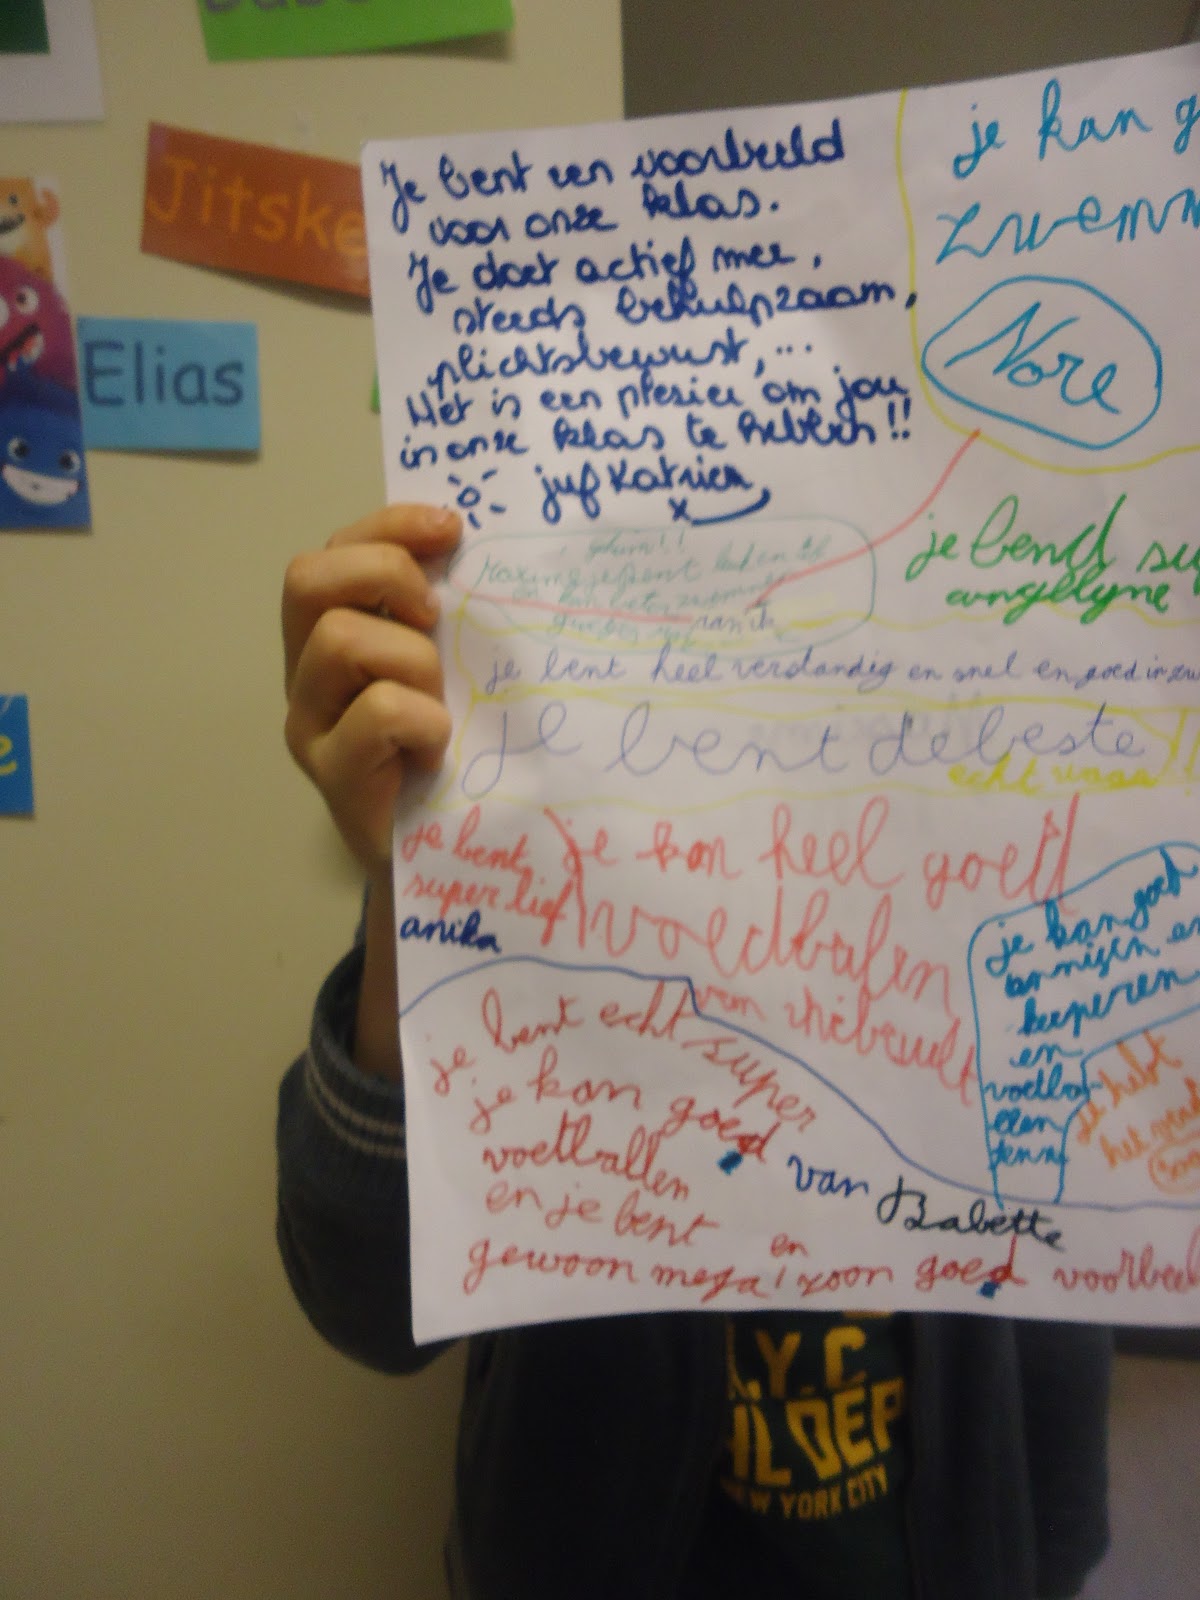 Jitske
Elias
e
Je bent een voorbeeld
voor onze klas.
Je doet actief mee,
steeds behulpzaam,
plichtsbewust, ...
Het is een plezier om jou
in onze klas te hebben!!
juf Katrien
x
je kan g
zwemm
Nore
je bend su
angellyne
je bent heel verstandig en snel en goed in zw
je bent de beste !!
echt
je bent
super lief
anika
je kan heel goed
voedbalen
van
je bent echt super
je kan goed
voetballen
en je bent
gewoon mega! en zoon goed voorbeel
van Babette
je kan goed
en
keeperen
en
voetba
je hebt
het
N.Y.C
NEW YORK CITY